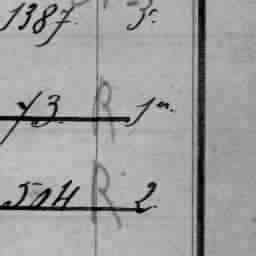 1387. 3.
73. R 1a.
504 R. 2.